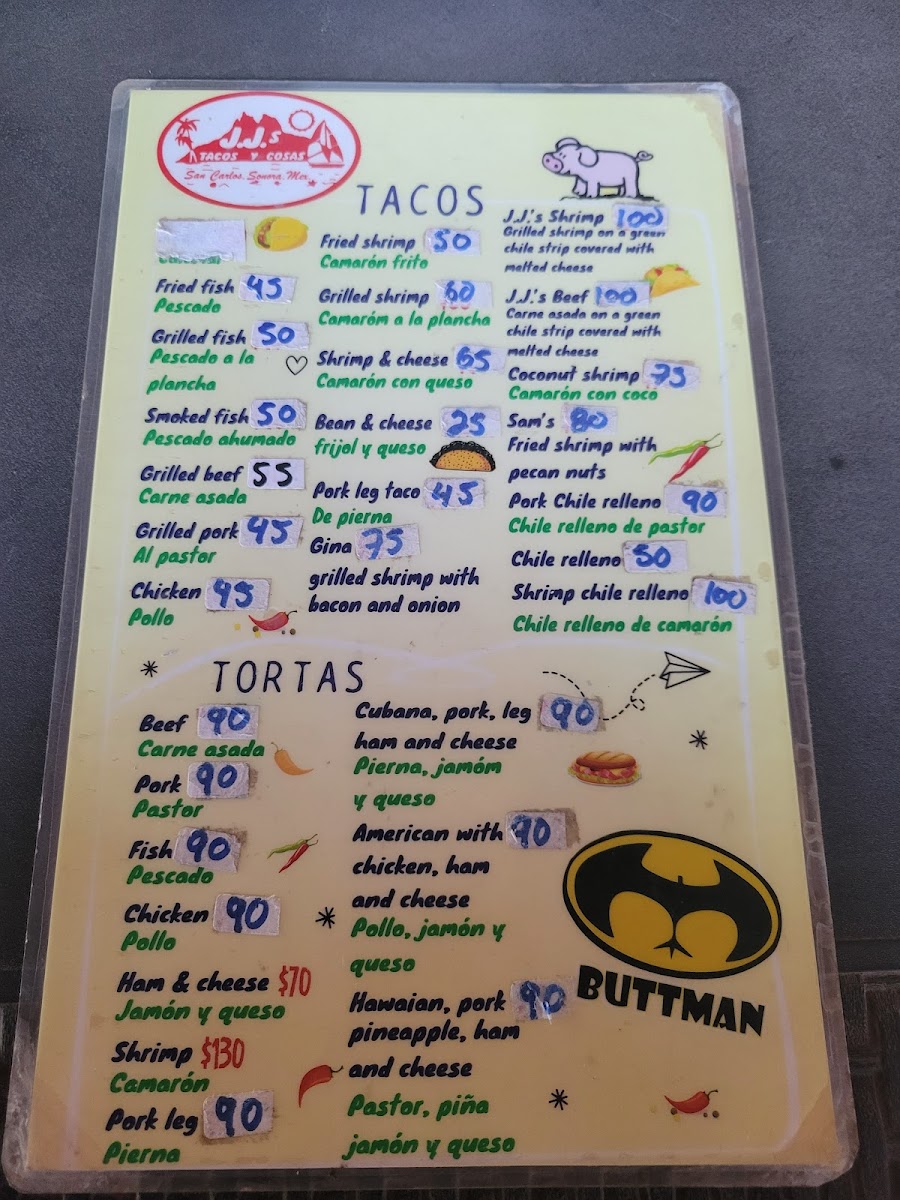 J.J.s
TACOS Y COSAS
San Carlos, Sonora, Mex.
TACOS
Fried fish 45
Pescado
Grilled fish 50
Pescado a la
plancha
Smoked fish 50
Pescado ahumado
Grilled beef 55
Carne asada
Grilled pork 45
Al pastor
Chicken 45
Pollo
Fried shrimp 50
Camarón frito
Grilled shrimp 60
Camaróm a la plancha
Shrimp & cheese 65
Camarón con queso
Bean & cheese 25
frijol y queso
Pork leg taco 45
De pierna
Gina 75
grilled shrimp with
bacon and onion
J.J.'s Shrimp 100
Grilled shrimp on a green
chile strip covered with
melted cheese
J.J.'s Beef 100
Carne asada on a green
chile strip covered with
melted cheese
Coconut shrimp 75
Camarón con coco
Sam's 80
Fried shrimp with
pecan nuts
Pork Chile relleno 90
Chile relleno de pastor
Chile relleno 50
Shrimp chile relleno 100
Chile relleno de camarón
TORTAS
Beef 90
Carne asada
Pork 90
Pastor
Fish 90
Pescado
Chicken 90
Pollo
Ham & cheese $70
Jamón y queso
Shrimp $130
Camarón
Pork leg 90
Pierna
Cubana, pork, leg 90
ham and cheese
Pierna, jamóm
y queso
American with 90
chicken, ham
and cheese
Pollo, jamón y
queso
Hawaian, pork 90
pineapple, ham
and cheese
Pastor, piña
jamón y queso
BUTTMAN